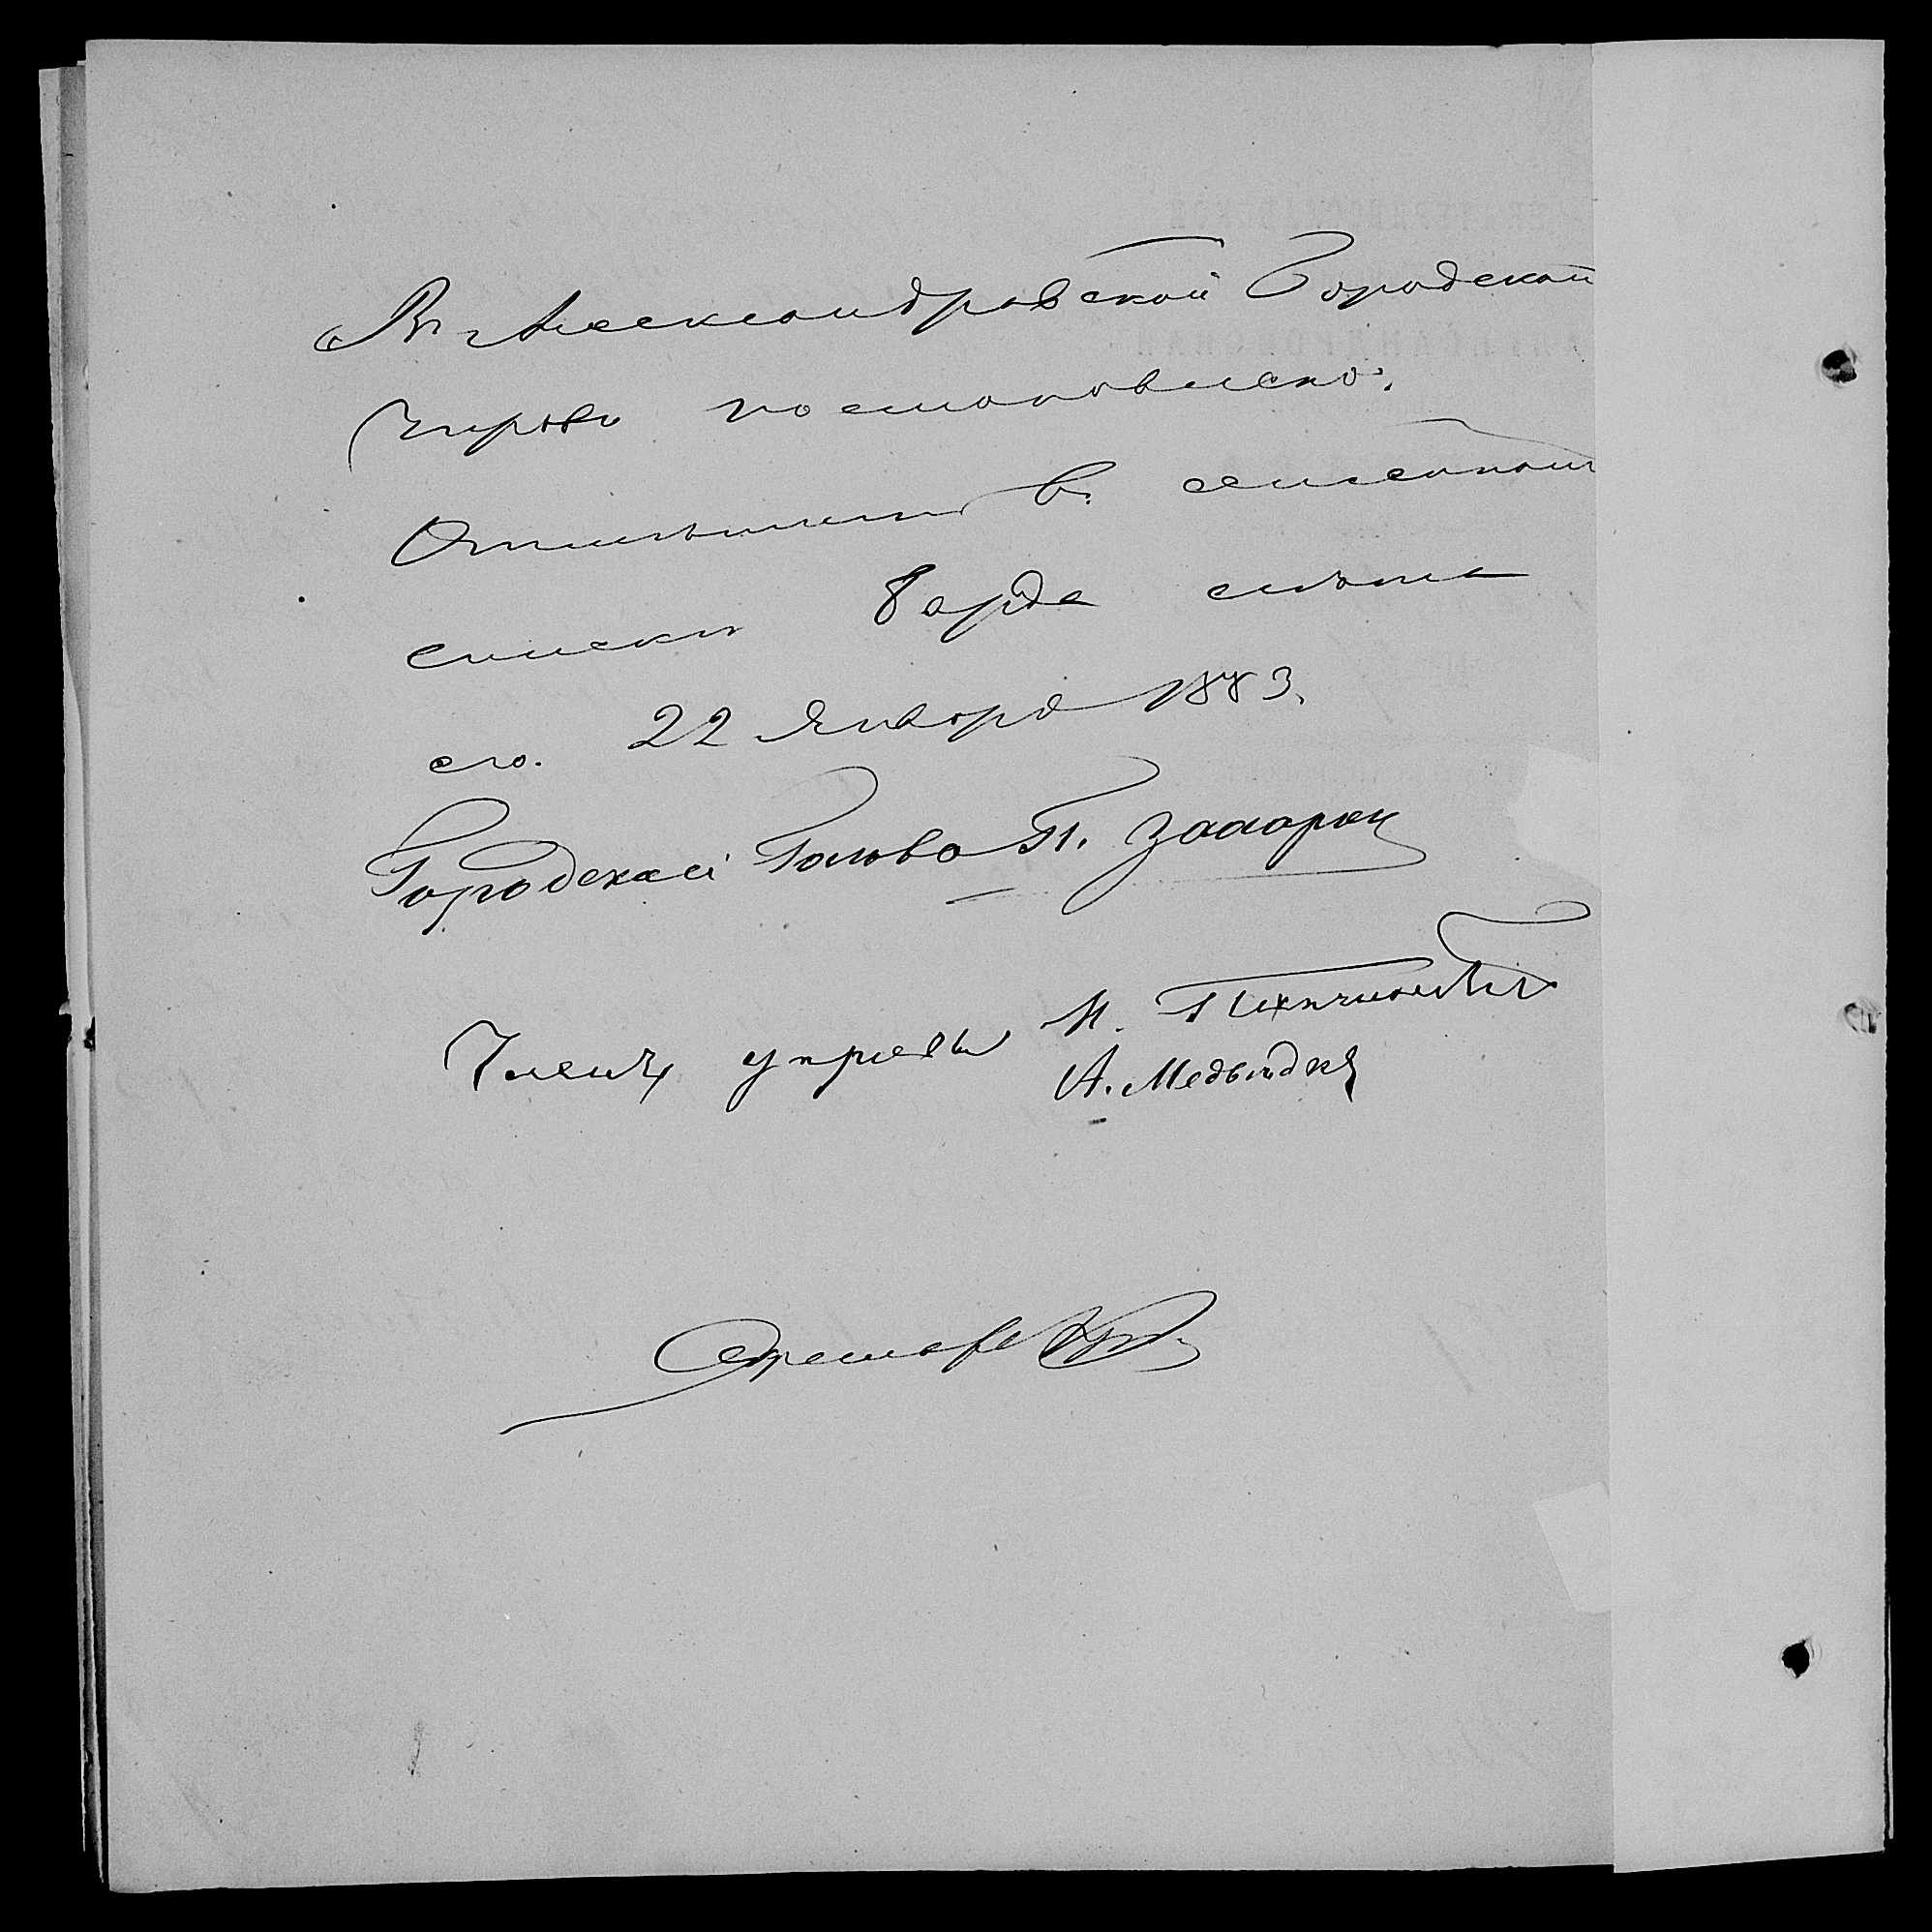 Въ Александровской Городской
Управѣ постановлено:
Отмѣтить въ семейномъ
списки Варда лѣта
его. 22 Января 1883.
Городской Голова П. Захарьи
Члены управы И.
А. Медвѣдкъ
Секретарь